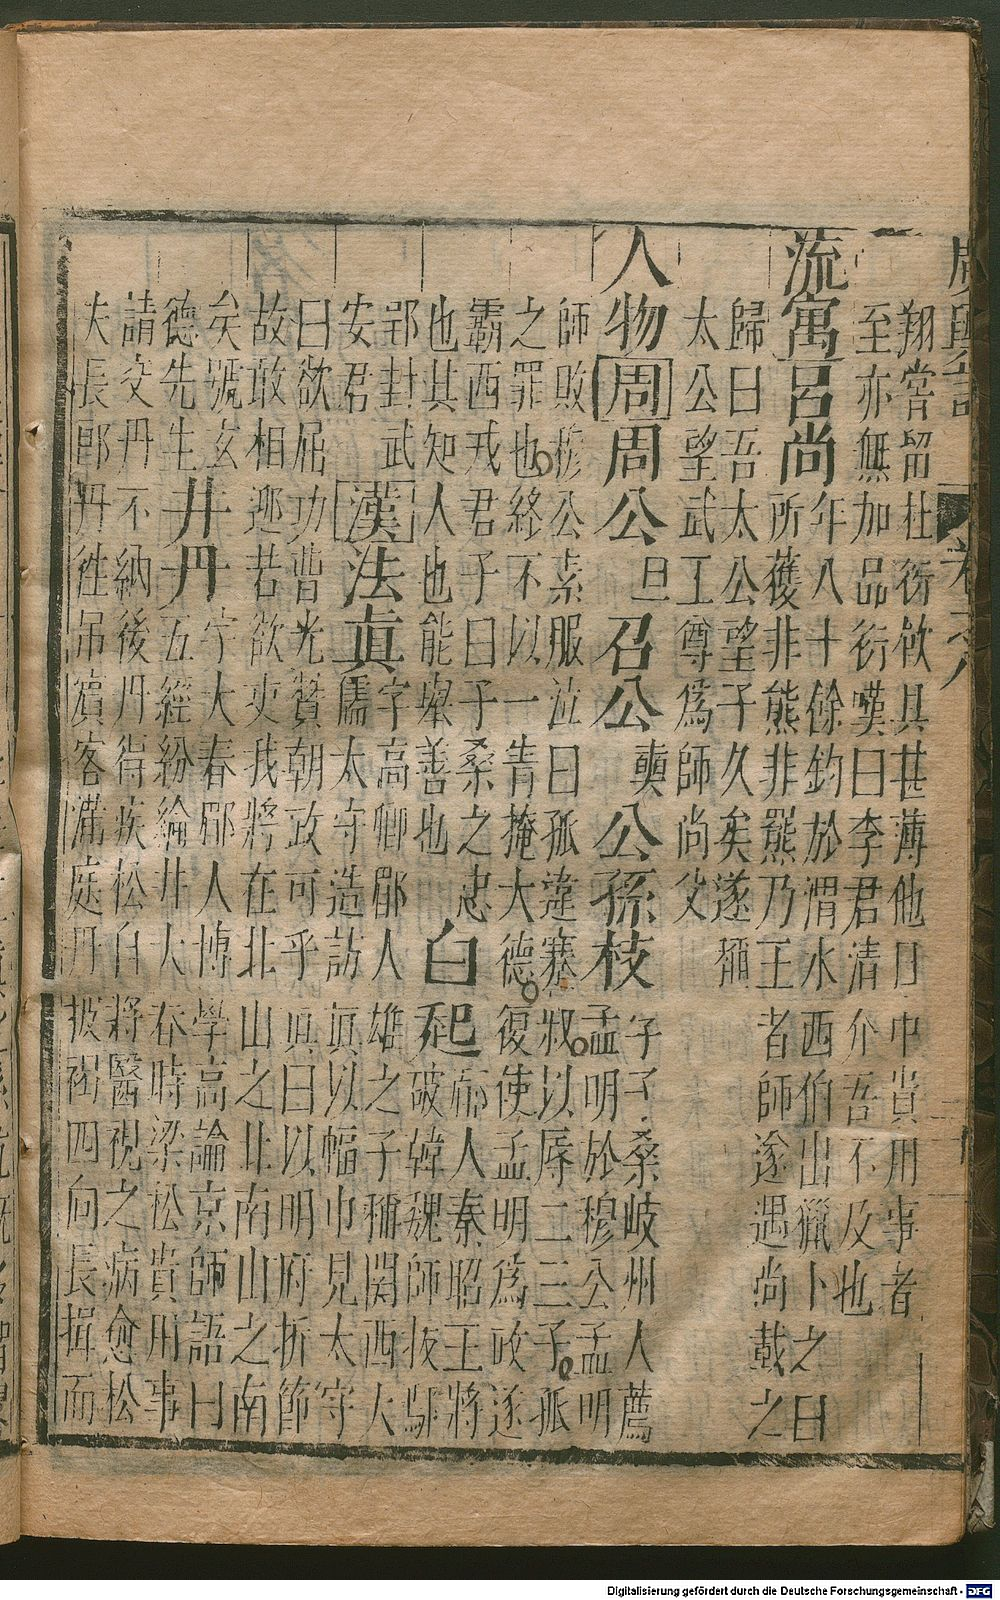 廣輿記
翔嘗留杜衍飲具甚薄他日中貴用事者
至亦無加品衍嘆曰李君清介吾不及也
流寓呂尚
年八十餘釣於渭水西伯出獵卜之曰
所獲非熊非羆乃王者師遂遇尚載之
歸曰吾太公望子久矣遂稱
太公望武王尊爲師尚父
人物周周公旦召公奭公孫枝
字子桑岐州人薦
孟明於穆公孟明
師敗穆公素服泣曰孤違蹇叔以辱二三子孤
之罪也終不以一眚掩大德復使孟明爲政遂
霸西戎君子曰子桑之忠
也其知人也能舉善也
白起
郿人秦昭王將
破韓魏師拔鄢
郢封武
安君
漢法眞
字高卿郡人雄之子稱関西大
儒太守造訪眞以幅巾見太守
曰欲屈功曹光贊朝政可乎眞曰以明府折節
故敢相迎若欲吏我將在北山之北南山之南
矣號玄
德先生
井丹
字大春郿人博學高論京師語曰
五經紛綸井大春時梁松貴用事
請交丹不納後丹得疾松自將醫視之病愈松
失長郎丹徃吊賓客滿庭丹披褐四向長揖而
Digitalisierung gefördert durch die Deutsche Forschungsgemeinschaft - DFG